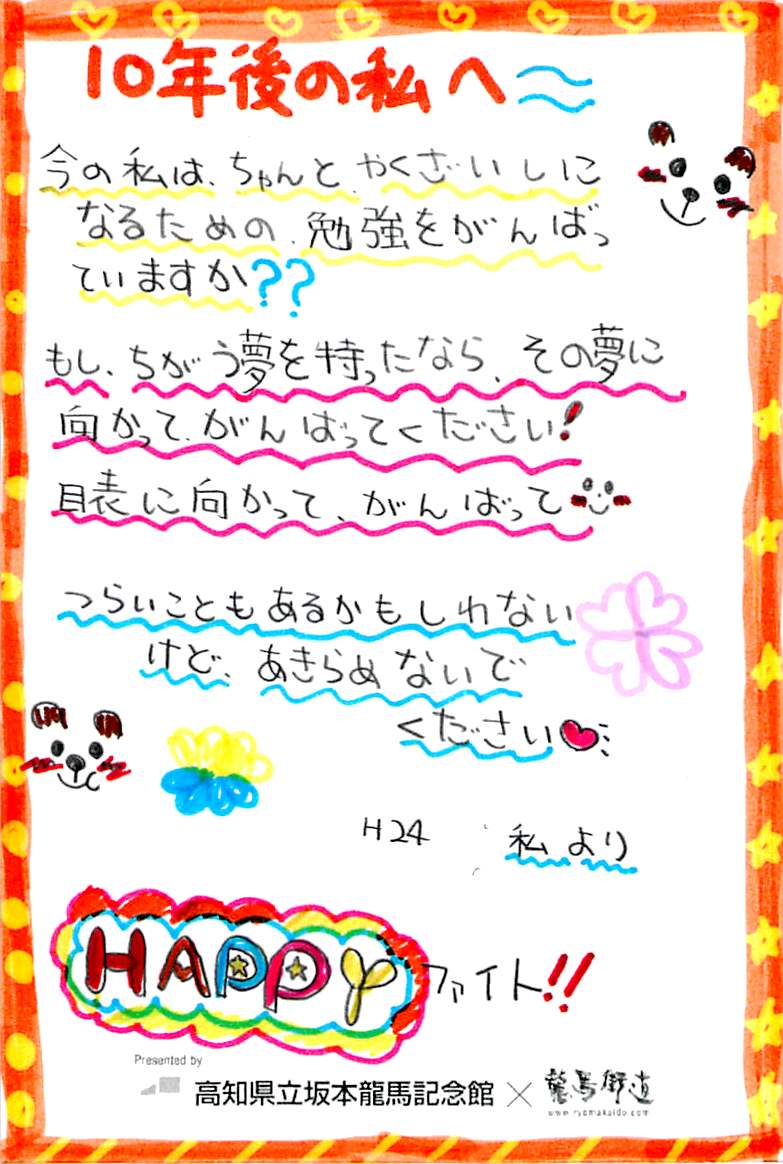 10年後の私へ
今の私は、ちゃんと、やくざいしに
なるための、勉強をがんばっ
ていますか??
もし、ちがう夢を持ったなら、その夢に
向かって、がんばってください!
目表に向かって、がんばって
つらいこともあるかもしれない
けど、あきらめないで
ください
H24 私より
HAPPYファイト!!
Presented by
高知県立坂本龍馬記念館×龍馬街道
www.ryomakaido.com